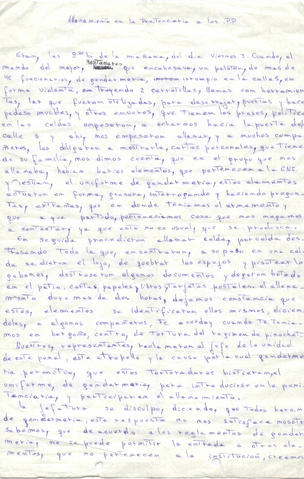 Allanamiento en la Penitenciaria a los PP
Eran, las 9 de la mañana, del dia Viernes 3. Cuando, al
mando del mayor, que encabezava, un peloton, de mas de
40 funcionarios, de gendarmeria, irrumpio en la calle 5, en
forma violenta, trayendo 2 carretillas llenas con herramien
tas, las que fueron utilizadas, para descerrajar, puertas, y hacer
pedazos muebles, y otros enseres, que tienen los presos, politicos
en las celdas empesaron, a entrar hacia la puerta del
calle 5 y ahi, nos empesaron allanar, y a muchos compa
ñeros, los obligaron a mostrarle, cartas personales, que tiene
de su familia, nos dimos cuenta, que en el grupo que nos
allanaba, habian varios elementos, que pertenecen a la CNI
y vestian, el uniforme de gendarmeria, estos elementos
actuaron en forma, grosera, interrogando y haciendo pregun
tas, en donde teniamos el armamento,
y que a que partido, perteneciamos cosa que nos negamos
a contestar, ya que esto no es usual, que se produzca.
En seguida procedieron allanar celda, por celda des
trosando Todo lo que, encontraron, a su paso en una cel
da se dieron el lujo, de quebrar los espejos, y
destrosaron algunos documentos y dejaron botado
en el patio. cartas, papeles, libros, tarjetas postales. el allana
miento duro mas de dos horas, dejamos constancia que
estos, elementos se identificaron ellos mismos, dicien
doles, a algunos compañeros. Te acorday cuando te tenia
mos en centro, de Tortura del regimen de pinochet.
Nuestros, representantes, reclamaron al Jefe de la unidad
de este penal, este atropello y la causa por la cual gendarme
ria permitio, que estos Torturadores vistieran, el
uniforme, de gendarmeria, para introducirse en la peni
tenciaria, y participar en el allanamiento.
La Jefatura se disculpo, diciendo, que todos heran
de gendarmeria, esta respuesta no nos satisface nosotros
sabemos, que de acuerdo a los reglamentos de gendar
meria, no se puede permitir la entrada a otros ele
mentos, que no pertenecen a la institucion, creemos